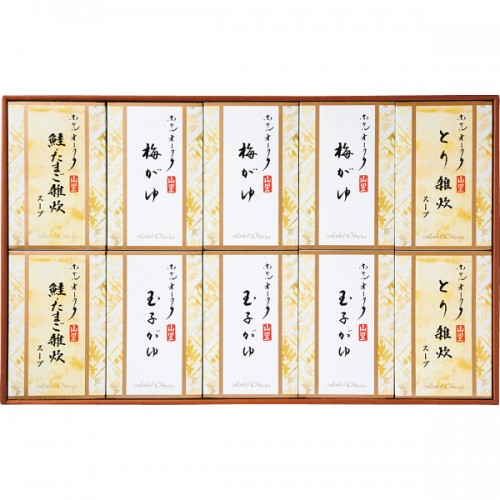 ホテルオークラ
山里
鮭・たまご雑炊
スープ
ホテルオークラ
山里
梅がゆ
Hotel Okura
ホテルオークラ
山里
梅がゆ
Hotel Okura
ホテルオークラ
山里
梅がゆ
Hotel Okura
ホテルオークラ
山里
とり雑炊
スープ
ホテルオークラ
山里
鮭・たまご雑炊
スープ
Hotel Okura
ホテルオークラ
山里
玉子がゆ
Hotel Okura
ホテルオークラ
山里
玉子がゆ
Hotel Okura
ホテルオークラ
山里
玉子がゆ
Hotel Okura
ホテルオークラ
山里
とり雑炊
スープ
Hotel Okura